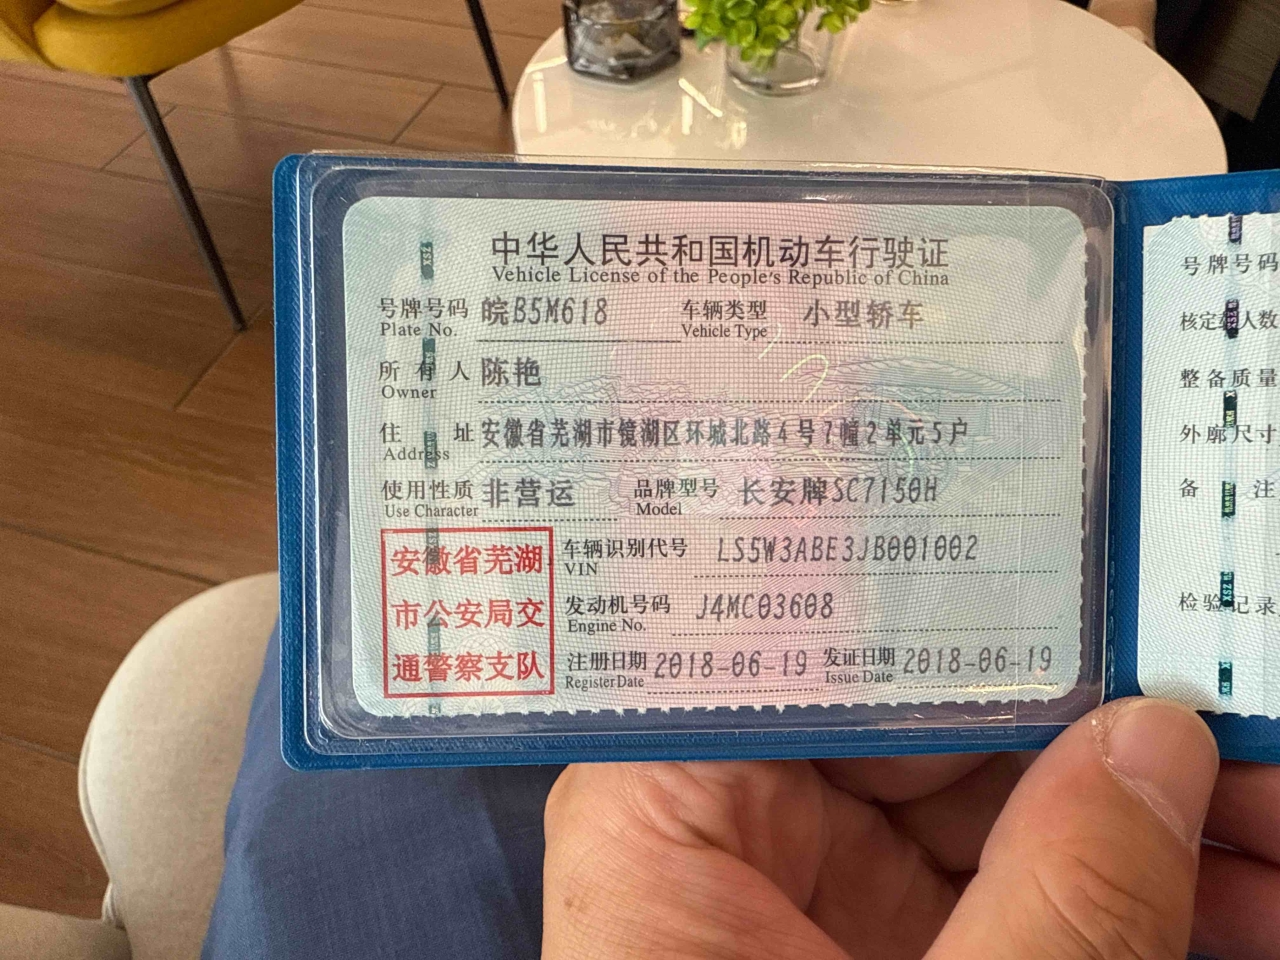 中华人民共和国机动车行驶证
Vehicle License of the People's Republic of China
号牌号码 皖B5M618 车辆类型 小型轿车
Plate No. Vehicle Type
所有人 陈艳
Owner
住址 安徽省芜湖市镜湖区环城北路4号7幢2单元5户
Address
使用性质 非营运 品牌型号 长安牌SC7150H
Use Character Model
安徽省芜湖
市公安局交
通警察支队
车辆识别代号 LS5W3ABE3JB001002
VIN
发动机号码 J4MC03608
Engine No.
注册日期 2018-06-19 发证日期 2018-06-19
Register Date Issue Date
号牌号码
核定 人数
整备质量
外廓尺寸
备注
检验记录